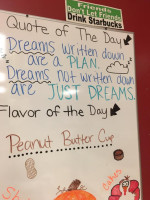 Friends
Don't Let Friends
Drink Starbucks
Quote of The Day
Dreams written down
are a PLAN.
Dreams not written down
are JUST DREAMS.
Flavor of the Day
Peanut Butter Cup